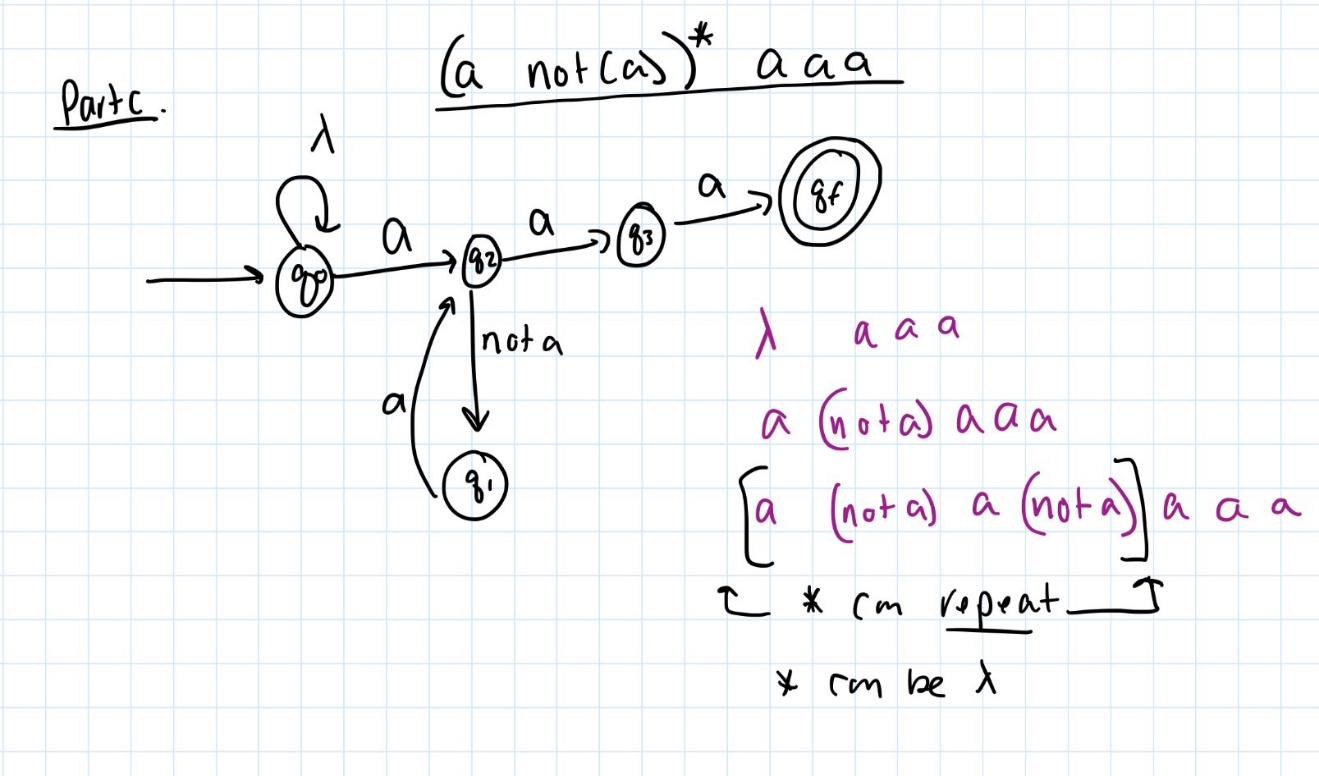 (a not(a))* aaa
Part c.
λ
a
a
a
q0
q2
q3
qf
not a
a
q1
λ aaa
a (not a) aaa
[a (not a) a (not a)] a a a
* can repeat
* can be λ